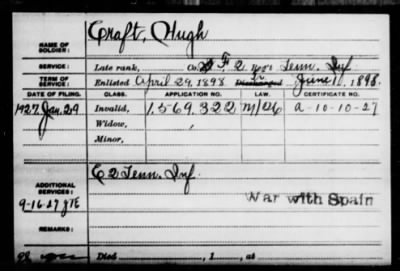 Craft, Hugh
NAME OF SOLDIER:
SERVICE: Late rank, Co. F 2 Regt Tenn. Inf
TERM OF SERVICE: Enlisted April 29, 1898 Discharged June 1, 1898.
DATE OF FILING. CLASS. APPLICATION NO. LAW. CERTIFICATE NO.
1927, Jan. 29 Invalid, 1.569.322 a-10-10-27
Widow,
Minor,
ADDITIONAL SERVICES: C 2 Tenn. Inf.
9-16-27
War with Spain
REMARKS:
Died , 1 , at